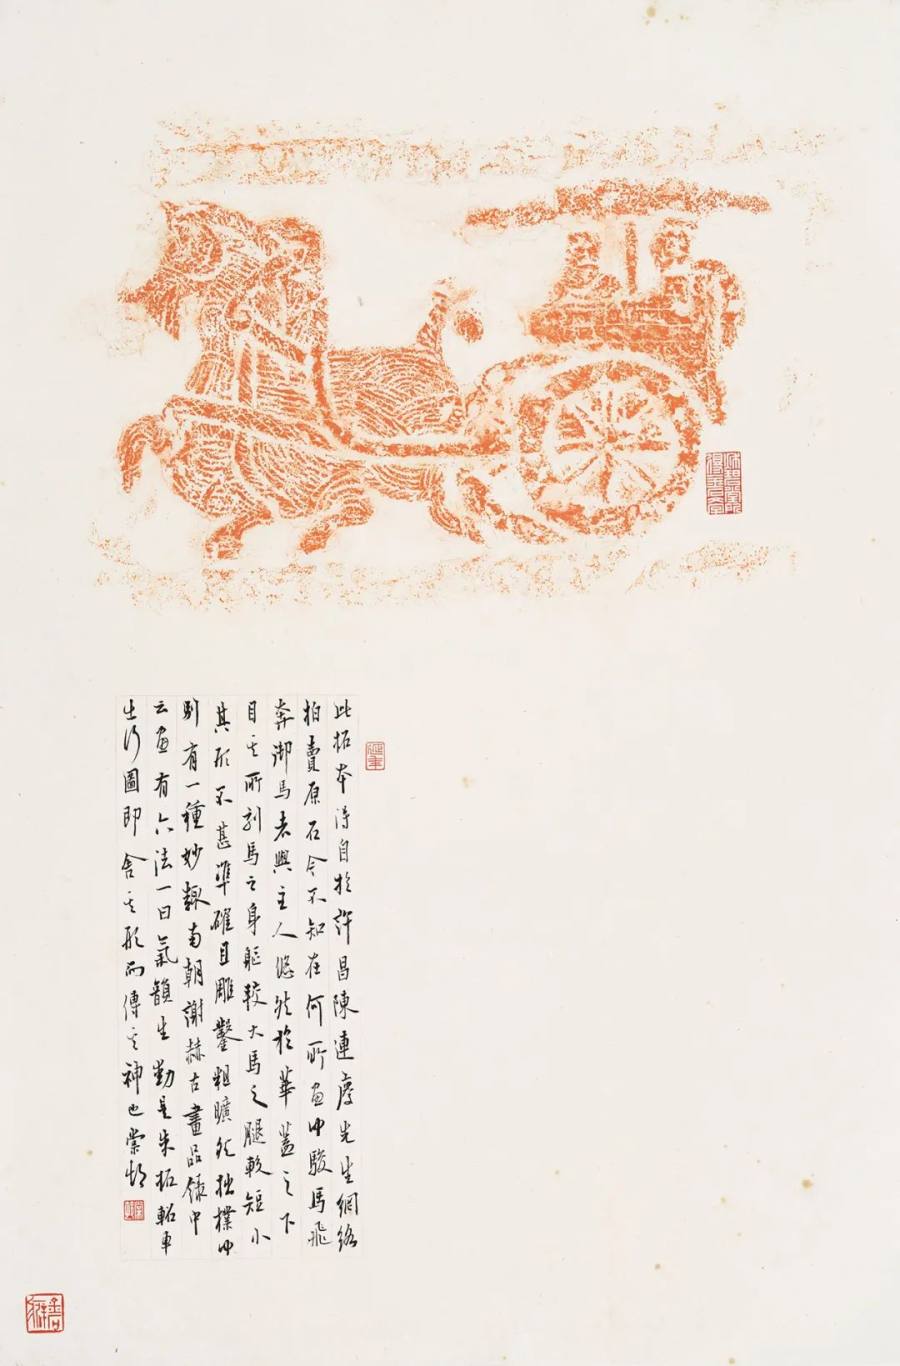 此拓本淂自於許昌陳連慶先生網絡
拍賣原石今不知在何所畫中駿馬飛
奔御馬者與主人悠然於華蓋之下
且其所刻馬之身軀較大馬之腿較短小
其形不甚準確且雕鑿粗曠然拙樸中
別有一種妙趣南朝謝赫古畫品錄中
云畫有六法一曰氣韻生動是朱拓軺車
出行圖即舍其形而傳其神也
延年